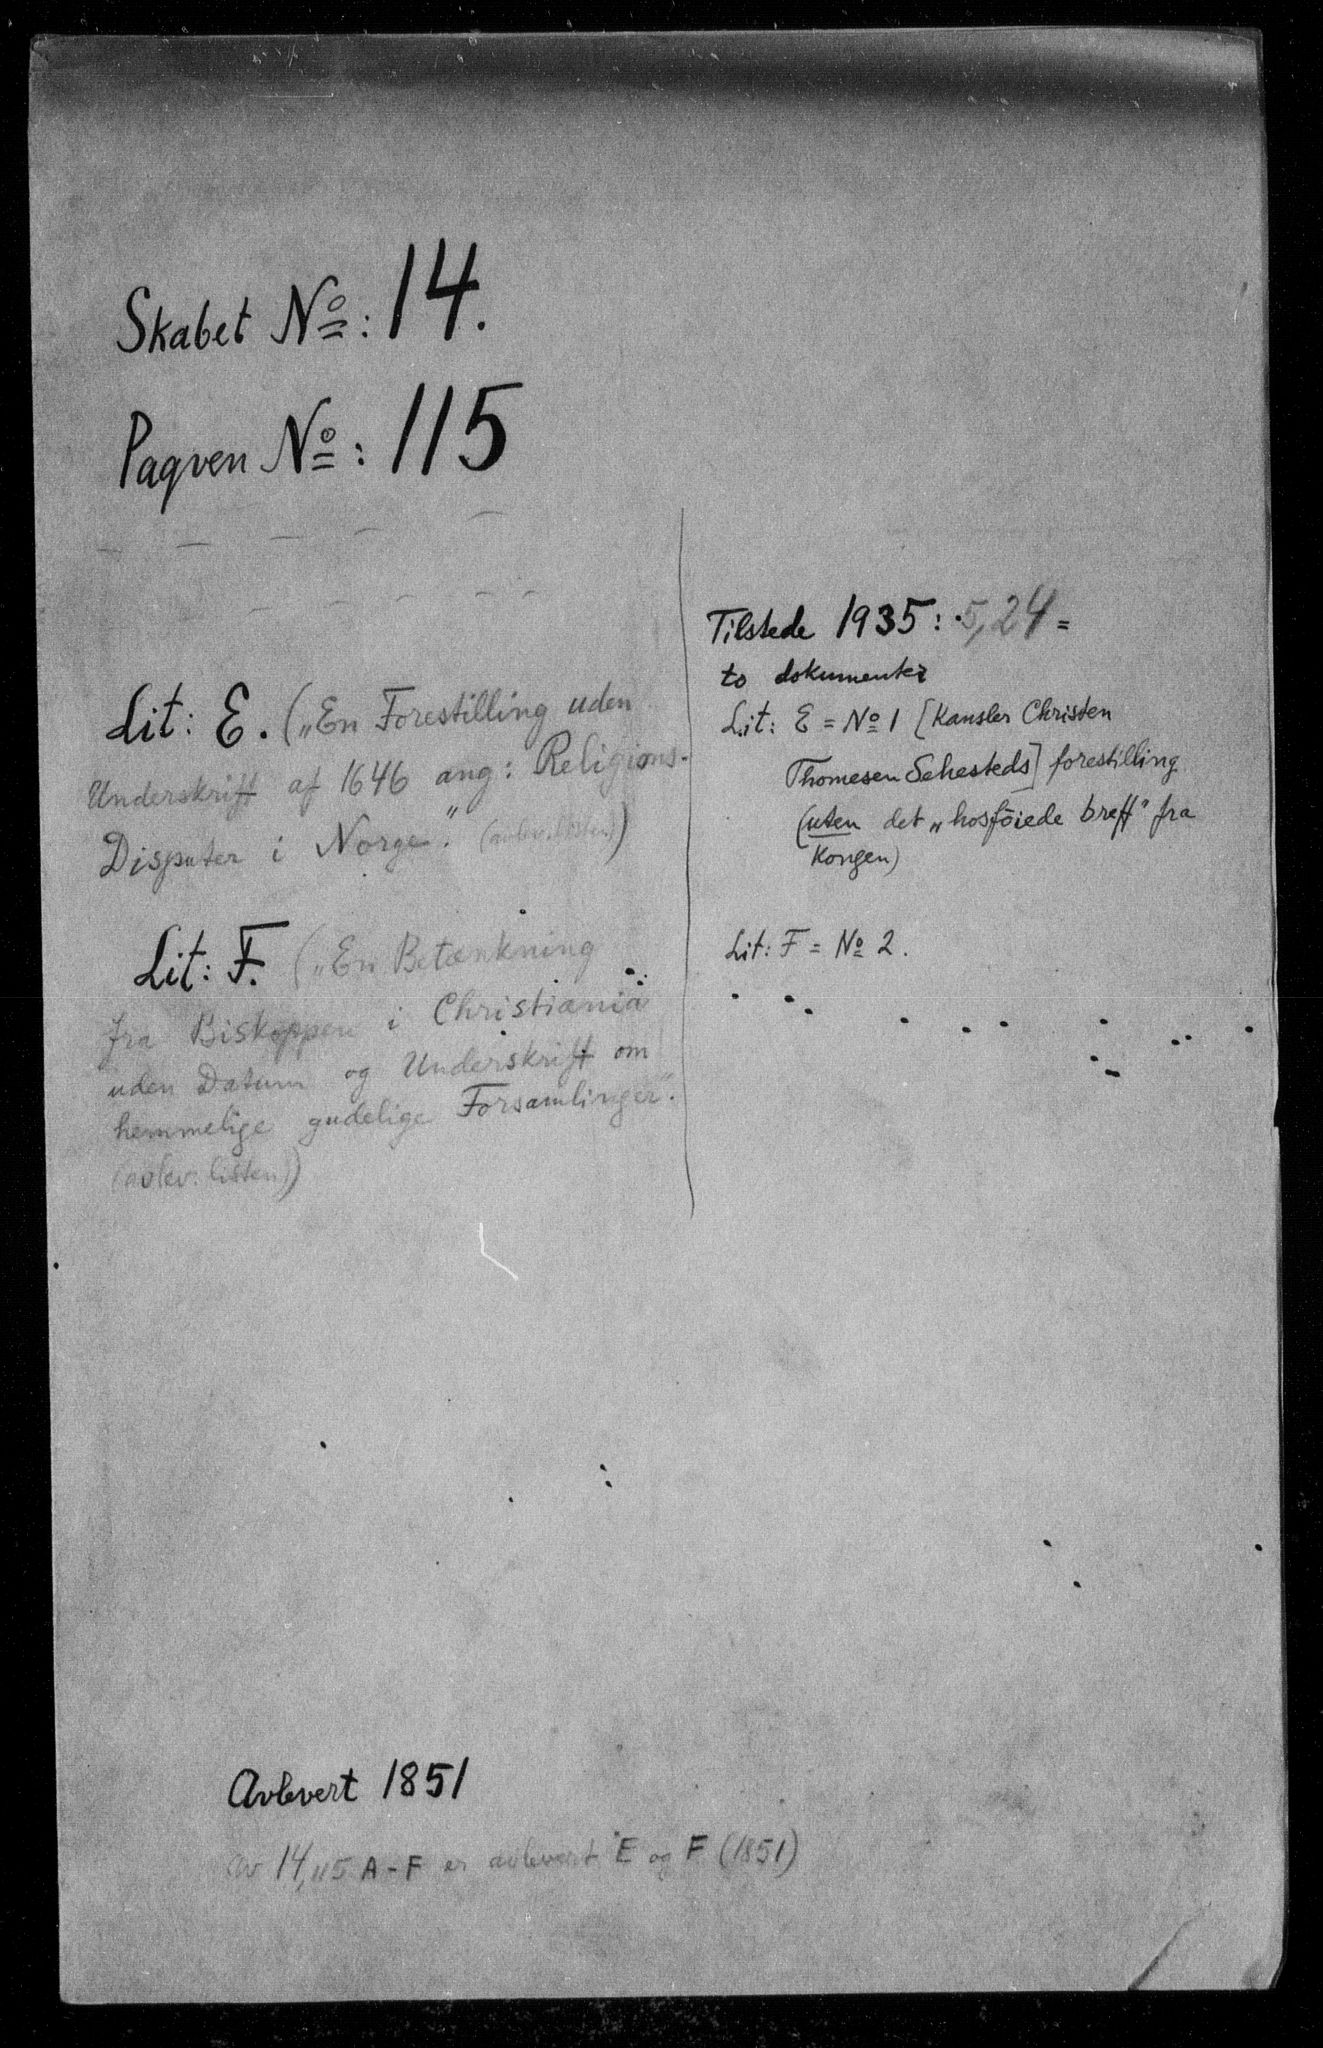 Skabet No: 14.
Paqven No: 115
Lit: E. („En Forestilling uden
Underskrift af 1646 ang: Religions-
Disputer i Norge." (avlev.listen))
Lit: F. („En Betænkning
fra Biskoppen i Christiania
uden Datum og Underskrift om
hemmelige gudelige Forsamlinger".
(avlev: listen))
Tilstede 1935: 5,24 =
to dokumenter
Lit: E = No 1 [Kansler Christen
Thomesen Sehesteds] forestilling
(uten det „hosföiede breff" fra
Kongen)
Lit: F = No 2.
Avlevert 1851
Av 14,115 A-F er avlevert E og F (1851)